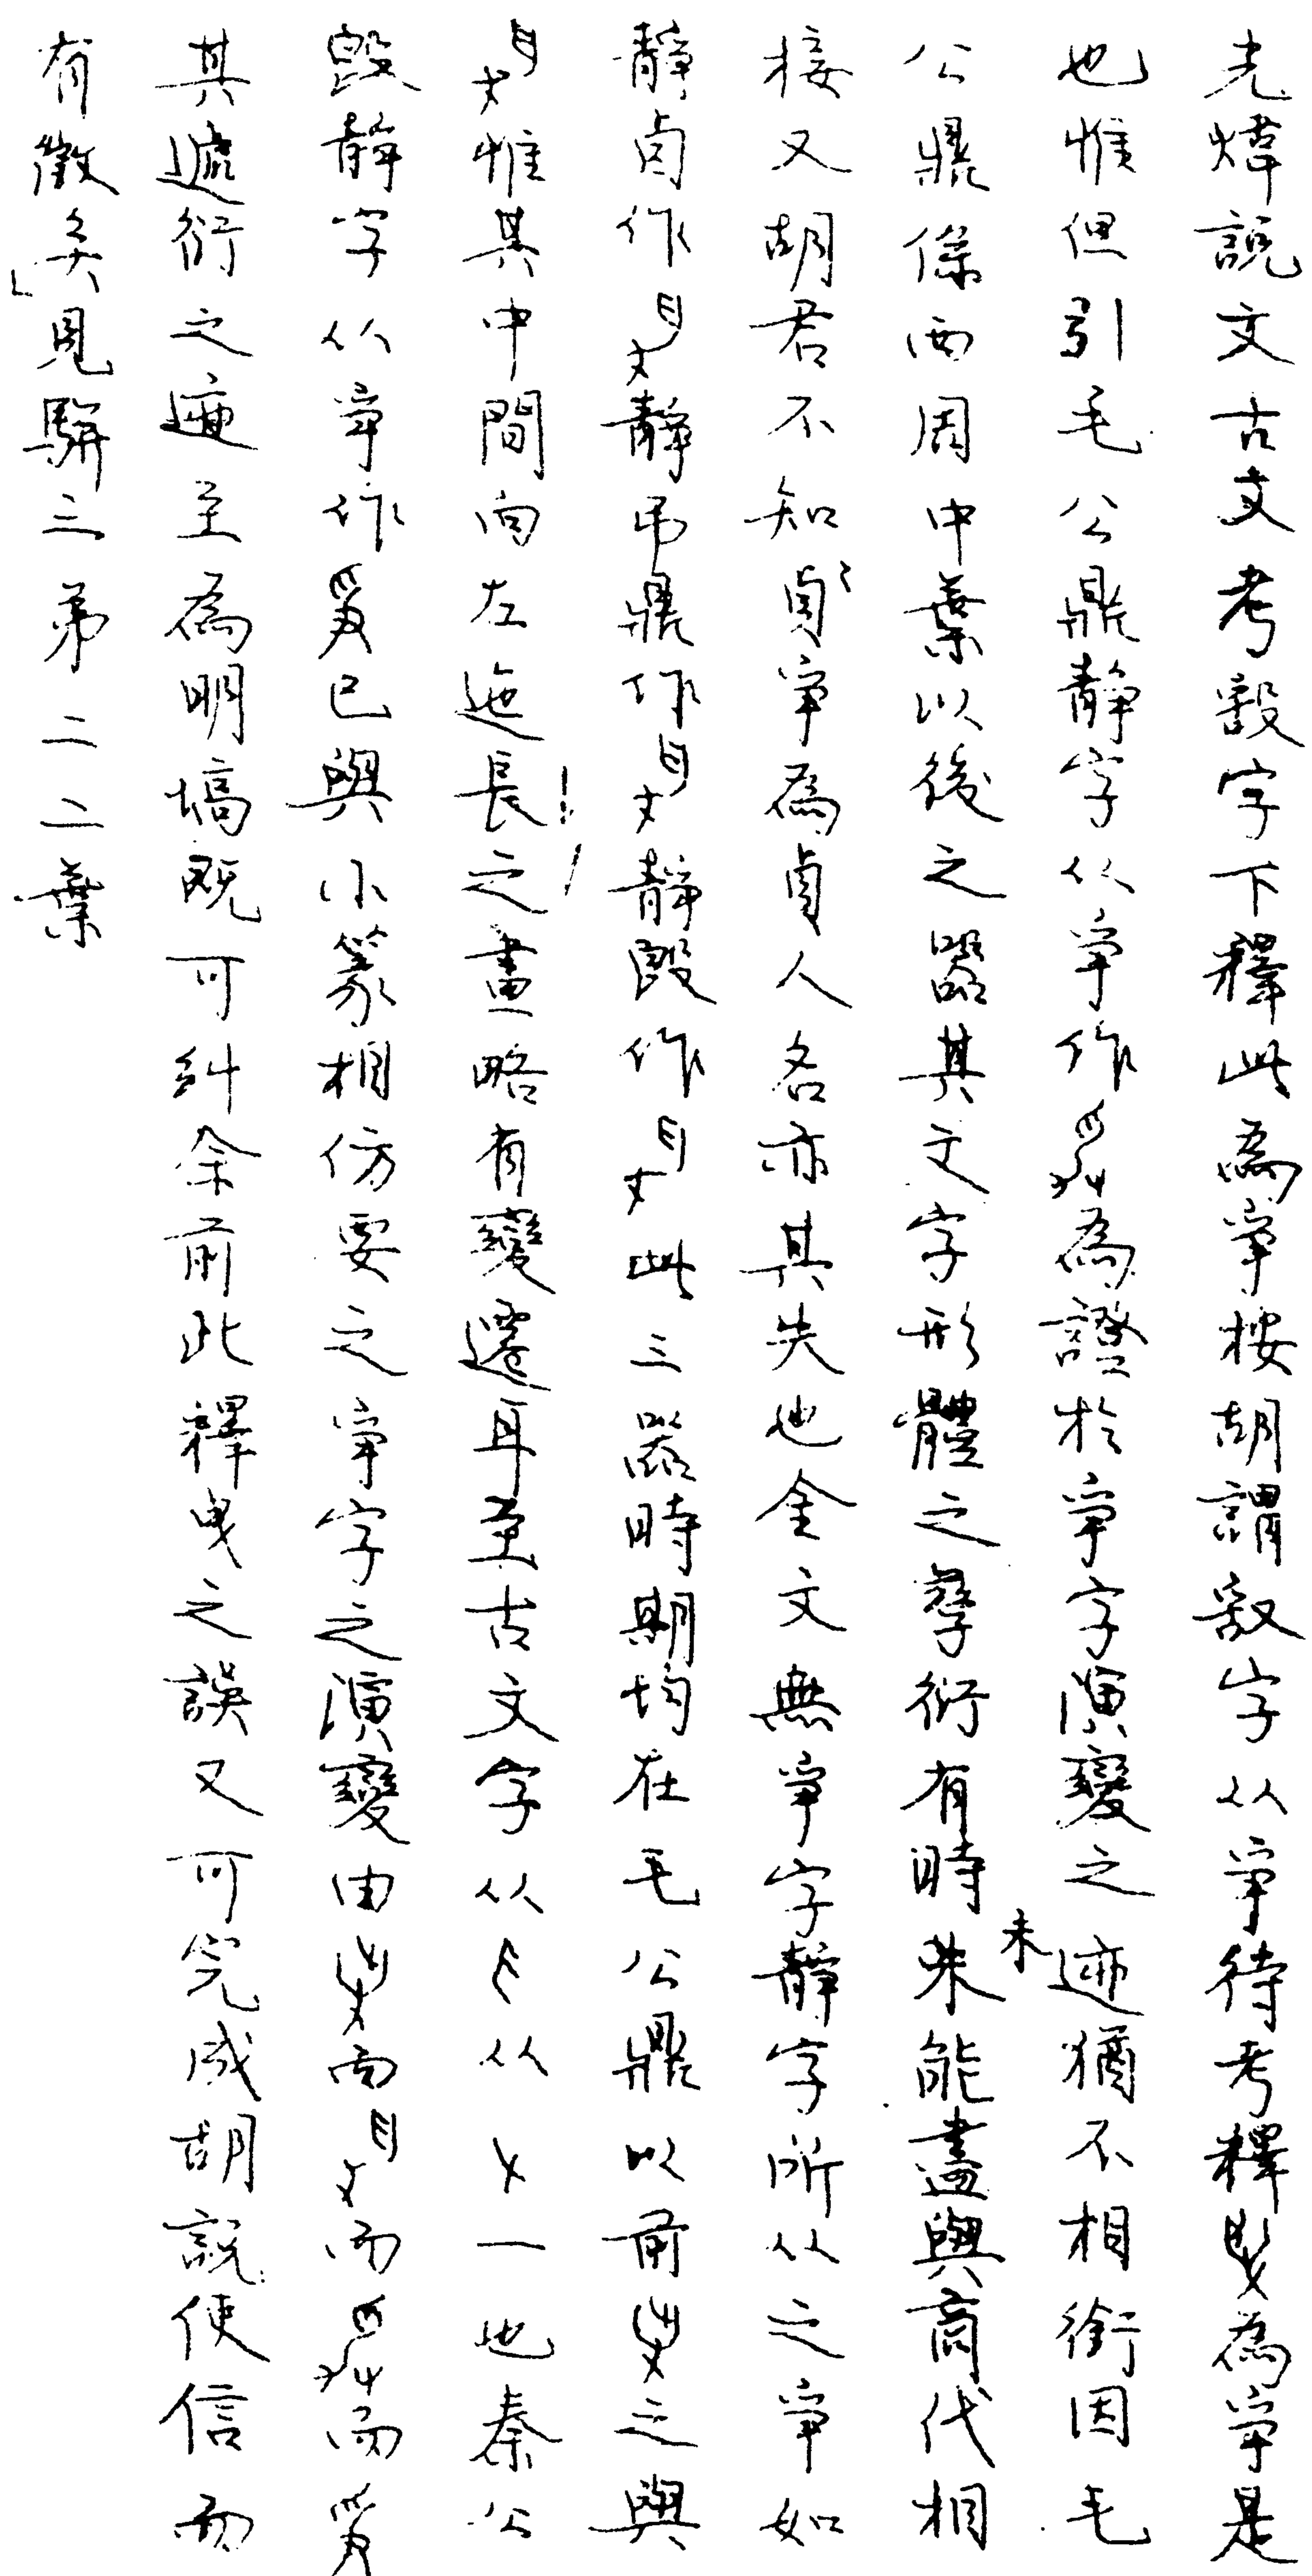 光煒說文古文考㱿字下釋此為爭按胡謂㪇字从爭待考釋為爭是
也惟但引毛公鼎靜字从爭作為證於爭字演變之迹猶不相銜因毛
公鼎係西周中葉以後之器其文字形體之孳衍有時未能盡與商代相
接又胡君不知貞爭為貞人名亦其失也金文無爭字靜字所从之爭如
靜卣作靜弔鼎作靜𣪘作此三器時期均在毛公鼎以前之與
惟其中間向左迤長之畫略有變遷耳至古文字从从一也秦公
𣪘靜字从爭作已與小篆相仿要之爭字之演變由而而而
其遞衍之迹至為明塙既可糾余前此釋曳之誤又可完成胡說使信而
有徵矣」見駢三第二二葉